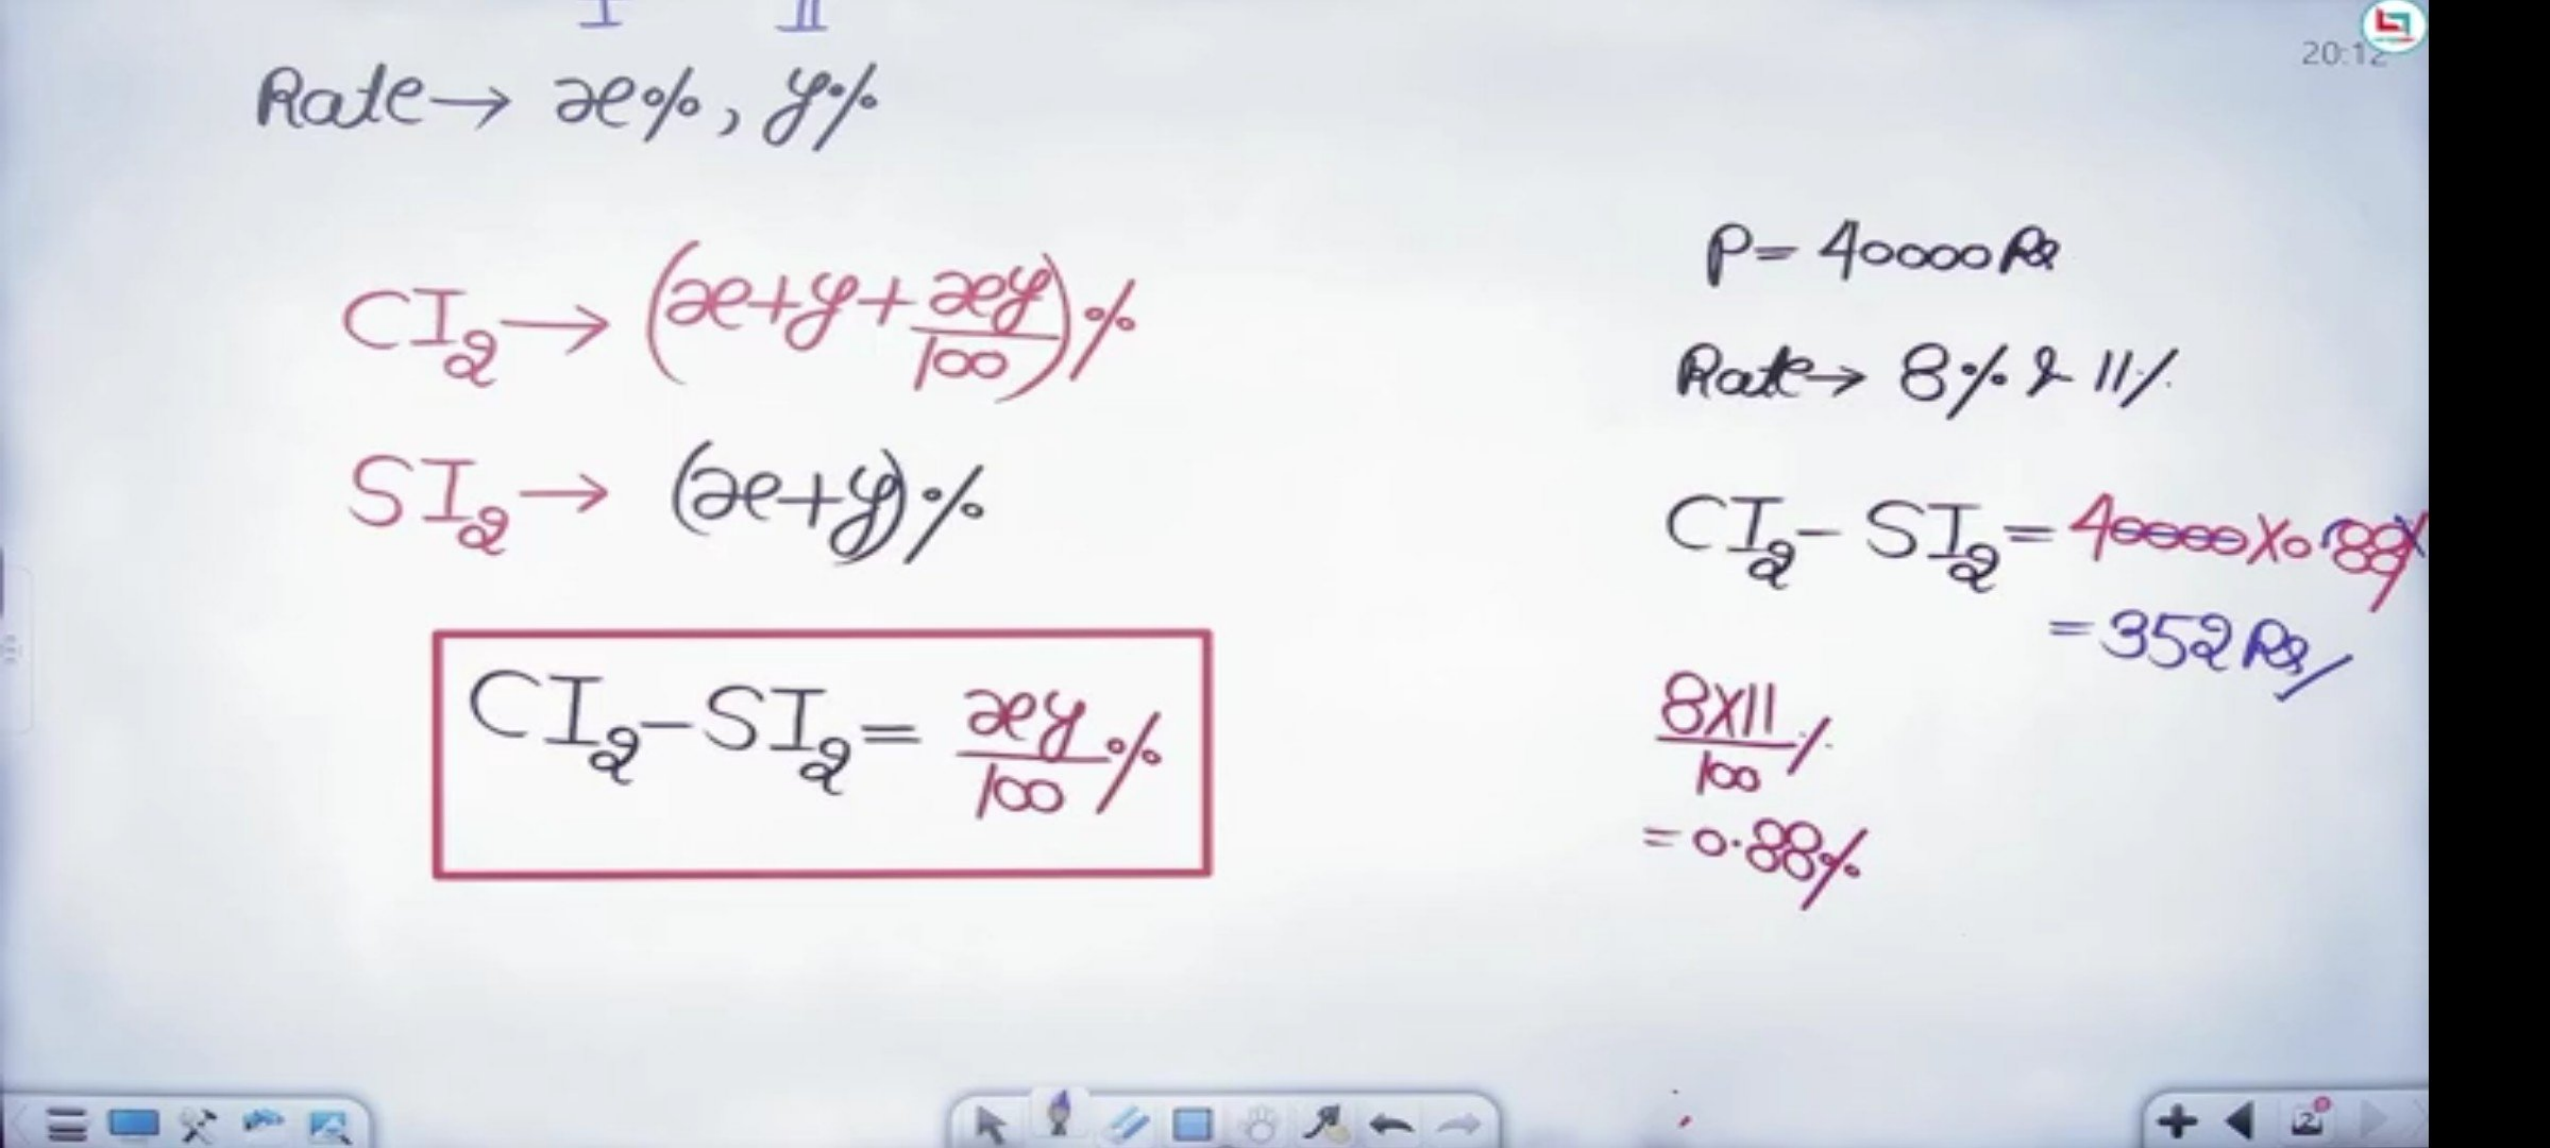 I II
Rate → x%, y%
CI₂ → (x+y+xy/100)%
SI₂ → (x+y)%
CI₂-SI₂= xy/100 %
20:12
P= 40000 Rs
Rate → 8% & 11%
CI₂- SI₂= 40000X0.88%
= 352 Rs/
8X11/100 %
= 0.88%
2